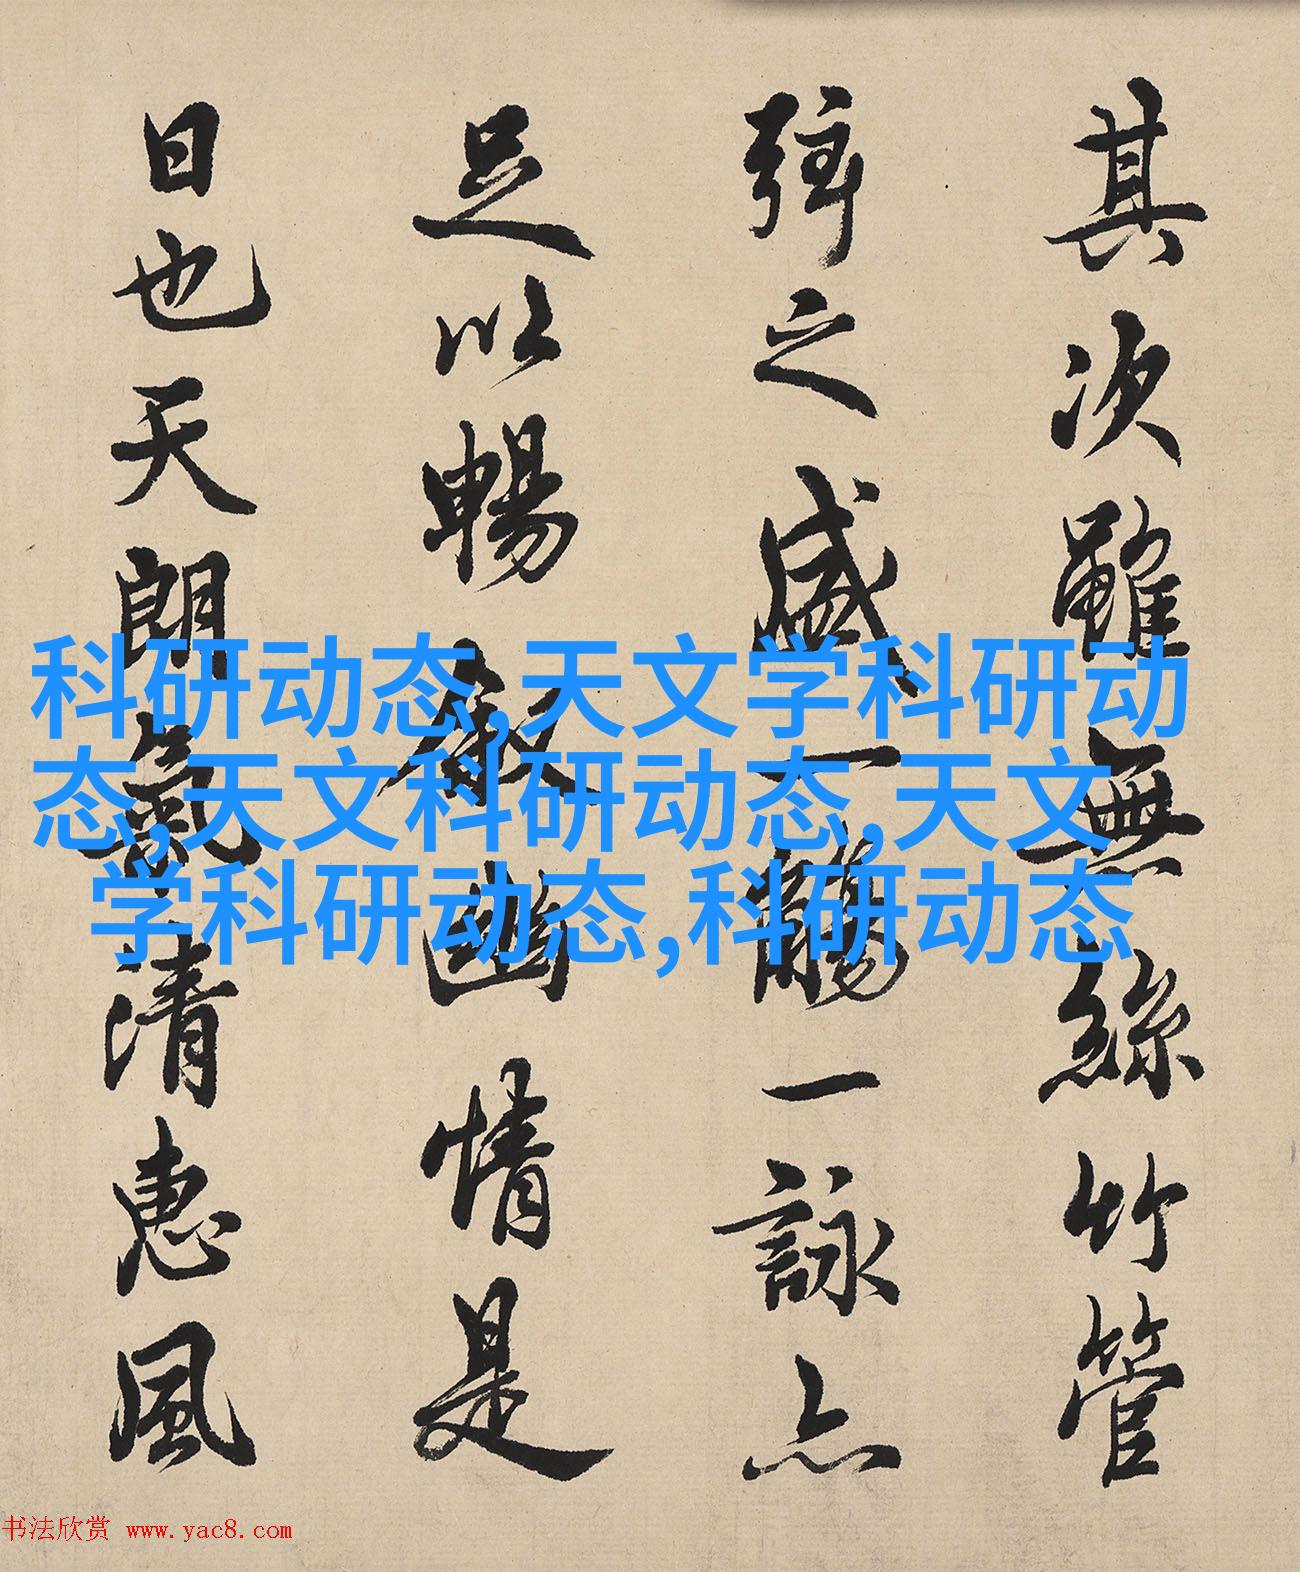 其次雖無絲竹管
弦之盛一觴一詠亦
足以暢敘幽情是
日也天朗氣清惠風
科研动态,天文学科研动
态,天文科研动态,天文
学科研动态,科研动态
书法欣赏 www.yac8.com